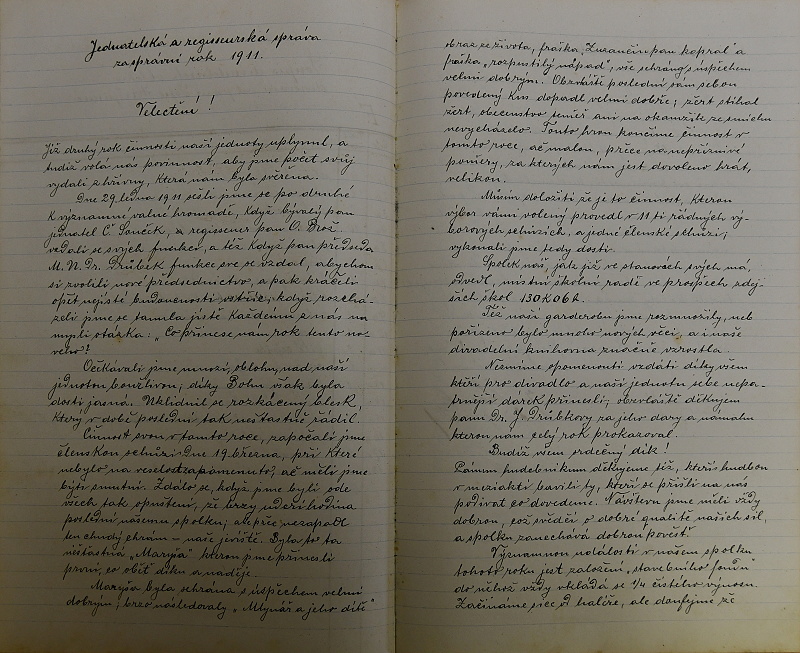 Jednatelská a regisseurská správa
za správní rok 1911.
Velectění!
Již druhý rok činnosti naší jednoty uplynul, a
tudíž volá nás povinnost, aby jsme počet svůj
vydali z hřivny, která nám byla svěřena.
Dne 29 ledna 1911 sešli jsme se po druhé
k významné valné hromadě, když bývalý pan
jednatel Č. Souček, a regisseur pan O. Brož
vzdali se svých funkcí, a též když pan předseda
M. N. Dr. Drůbek funkce své se vzdal, abychom
si zvolili nové předsednictvo, a pak kráčeli
opět nejisté budoucnosti vstříc, když rozchá-
zeli jsme se tanula jistě každému z nás na
mysli otázka: „Co přinese nám rok tento no-
vého?
Očekávali jsme mnozí, oblohu, nad naší
jednotou bouřlivou; díky Bohu však byla
dosti jasná. Uklidnil se rozkácený blesk,
který v době poslední tak nešťastně řádil.
Činnost svou v tomto roce, započali jsme
členskou schůzí. Dne 19. března, při které
nebylo na veselost zapomenuto, ač měli jsme
býti smutní. Zdálo se, když jsme byli ode
všech tak opuštěni, že brzy udeří hodina
poslední našemu spolku, ale přec nezapadl
ten chudý chrám – naše jeviště. Byla to ta
nešťastná „Maryša" kterou jsme přinesli
první, co oběť díků a naděje.
Maryša byla sehrána s úspěchem velmi
dobrým; brzo následovaly „Mlynář a jeho dítě"
obraz ze života, fraška „Zuzančin pan kaprál" a
fraška „rozpustilý nápad"; vše sehráno s úspěchem
velmi dobrým. Obzvláště poslední sám sebou
povedený kus dopadl velmi dobře; žert stíhal
žert, obecenstvo téměř ani na okamžik ze smíchu
nevycházelo. Touto hrou končíme činnost v
tomto roce, ač malou, přece na nepříznivé
poměry, za kterých nám jest dovoleno hrát,
velikou.
Musím doložiti že je to činnost, kterou
výbor vámi volený provedl v 11 ti řádných vý-
borových schůzích, a jedné členské schůzi;
vykonali jsme tedy dosti.
Spolek náš, jak již ve stanovách svých má,
odvedl, místní školní radě ve prospěch zdej-
ších škol 130 K 06 h.
Též naší garderobu jsme rozmnožily, neb
pořízeno bylo mnoho nových věcí, a i naše
divadelní knihovna značně vzrostla.
Nesmíme opomenouti vzdáti díky všem
kteří pro divadlo a naší jednotu sebe nepa-
trnější dárek přinesli; obzvláště děkujem
panu Dr. J. Drůbkovy za jeho dary a námahu
kterou nám celý rok prokazoval.
Budiž všem srdečný dík!
Pánům hudebníkům děkujeme též, kteří hudbou
v meziaktí bavili ty, kteří se přišli na nás
podívat co dovedeme. Návštevu jsme měli vždy
dobrou, což svědčí o dobré qualitě našich sil,
a spolku zanechává dobrou pověst.
Významnou událostí v našem spolku
tohoto roku jest založení „stavebního fondu"
do něhož vždy vkládá se 1/4 čistého výnosu.
Začínáme sice od haléře, ale doufejmě že